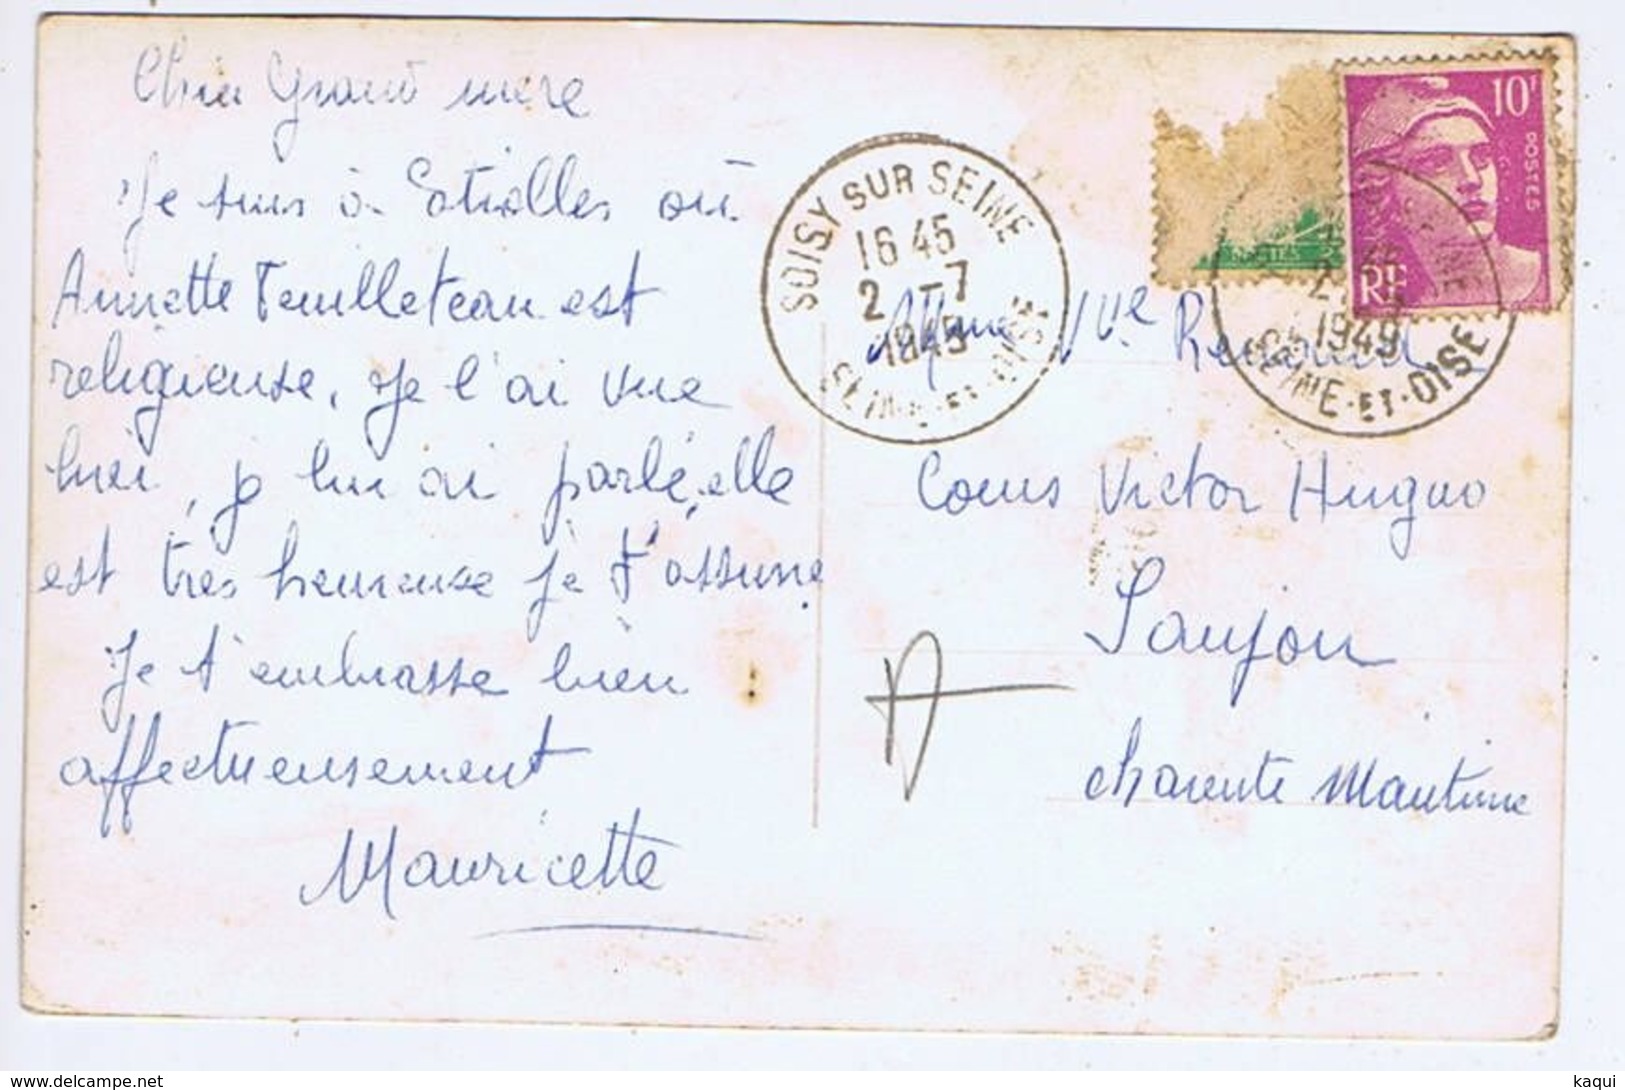 Chère Grand mere
Je suis à Etiolles où
Annette Feuilleteau est
religieuse, Je l'ai vue
hier, je lui ai parlé, elle
est très heureuse je t'assure.
Je t'embrasse bien
affectueusement
Mauricette
SOISY SUR SEINE
16 45
2 -7
1949
SEINE-ET-OISE
10F
POSTES
RF
POSTES
1949
SEINE-ET-OISE
Mme Vve
Cours Victor Huguo
Saujon
Charente Maritime
kaqui